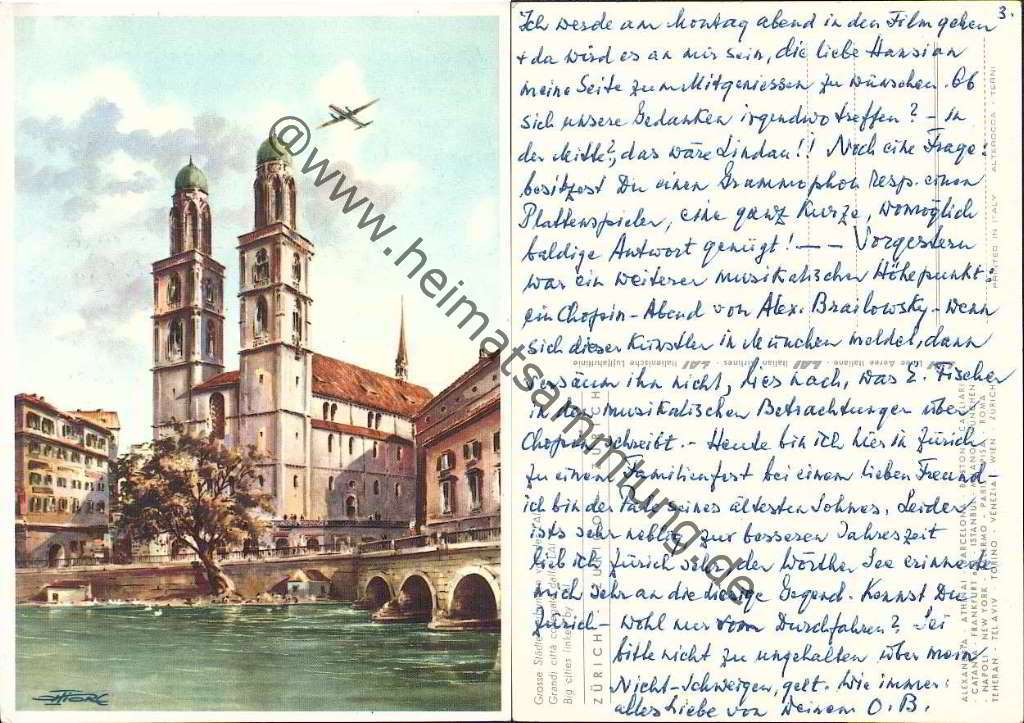 3.
Ich werde am Montag abend in den Film gehen
+ da wird es an mir sein, die liebe Hansi an
meine Seite zum Mitgeniessen zu wünschen. Ob
sich unsere Gedanken irgendwo treffen? - in
der Mitte?, das wäre Lindau!! Noch eine Frage:
besitzest Du einen Grammophon resp. einen
Plattenspieler, eine ganz kurze, womöglich
baldige Antwort genügt! — — Vorgestern
war ein weiterer musikalischer Höhepunkt:
ein Chopin-Abend von Alex. Brailowsky - wenn
sich dieser Künstler in München meldet, dann
versäum ihn nicht, lies nach, was E. Fischer
in den musikalischen Betrachtungen über
Chopin schreibt. - Heute bin ich hier in Zürich
zu einem Familienfest bei einem lieben Freund
ich bin der Pate seines ältesten Sohnes. Leider
ists sehr neblig, zur besseren Jahreszeit
lieb ich Zürich sehr, der Wörther See erinnerte
mich sehr an die hiesige Gegend. Kennst Du
Zürich - wohl nur vom Durchfahren? Sei
bitte nicht zu ungehalten über mein
Nicht-Schweigen, gelt. Wie immer
alles Liebe von Deinem O.B.
@www.heimatsammlung.de
PRINTED IN ITALY - ALTEROCCA - TERNI
Linee Aeree Italiane - LAI - Italian Airlines - LAI - Italienische Luftfahrtlinie
Grosse Städte
Grandi città
Big cities linked by LAI
ZÜRICH - ZURIGO - ZURICH
ALEXANDRIA - ATHENAI - BARCELONA - BOSTON - CAGLIARI
- CATANIA - FRANKFURT - ISTANBUL - MILANO - MÜNCHEN
- NAPOLI - NEW YORK - PALERMO - PARIS - PISA - ROMA -
TEHERAN - TEL AVIV - TORINO - VENEZIA - WIEN - ZURICH